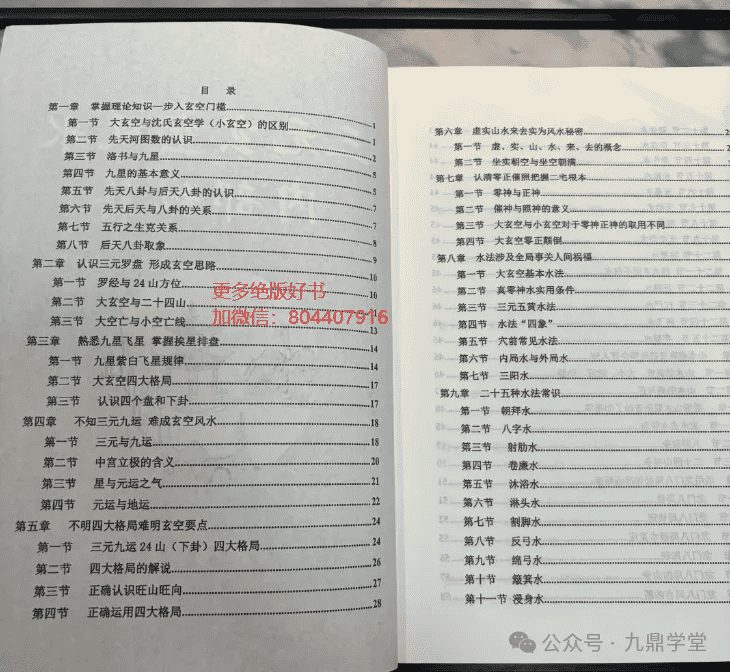 目 录
第一章 掌握理论知识一步入玄空门槛
第一节 大玄空与沈氏玄空学（小玄空）的区别 1
第二节 先天河图数的认识 1
第三节 洛书与九星 2
第四节 九星的基本意义 5
第五节 先天八卦与后天八卦的认识 5
第六节 先天后天与八卦的关系 7
第七节 五行之生克关系 7
第八节 后天八卦取象 8
第二章 认识三元罗盘 形成玄空思路 9
第一节 罗经与24山方位 10
第二节 大玄空与二十四山 10
第三节 大空亡与小空亡线 13
第三章 熟悉九星飞星 掌握挨星排盘 14
第一节 九星紫白飞星规律 14
第二节 大玄空四大格局 17
第三节 认识四个盘和下卦 17
第四章 不知三元九运 难成玄空风水 18
第一节 三元与九运 18
第二节 中宫立极的含义 20
第三节 星与元运之气 21
第四节 元运与地运 22
第五章 不明四大格局难明玄空要点 24
第一节 三元九运24山（下卦）四大格局 24
第二节 四大格局的解说 26
第三节 正确认识旺山旺向 27
第四节 正确运用四大格局 28
更多绝版好书
加微信：804407916
第六章 虚实山水来去实为风水秘密
第一节 虚、实、山、水、来、去的概念
第二节 坐实朝空与坐空朝满
第七章 认清零正催照把握二宅根本
第一节 零神与正神
第二节 催神与照神的意义
第三节 大玄空与小玄空对于零神正神的取用不同
第四节 大玄空零正颠倒
第八章 水法涉及全局事关人间祝福
第一节 大玄空基本水法
第二节 真零神水实用条件
第三节 三元五黄水法
第四节 水法“四象”
第五节 穴前常见水法
第六节 内局水与外局水
第七节 三阳水
第九章 二十五种水法常识
第一节 朝拜水
第二节 八字水
第三节 射肋水
第四节 卷廉水
第五节 沐浴水
第六节 淋头水
第七节 割脚水
第八节 反弓水
第九节 绵弓水
第十节 簸箕水
第十一节 浸身水
公众号·九鼎学堂